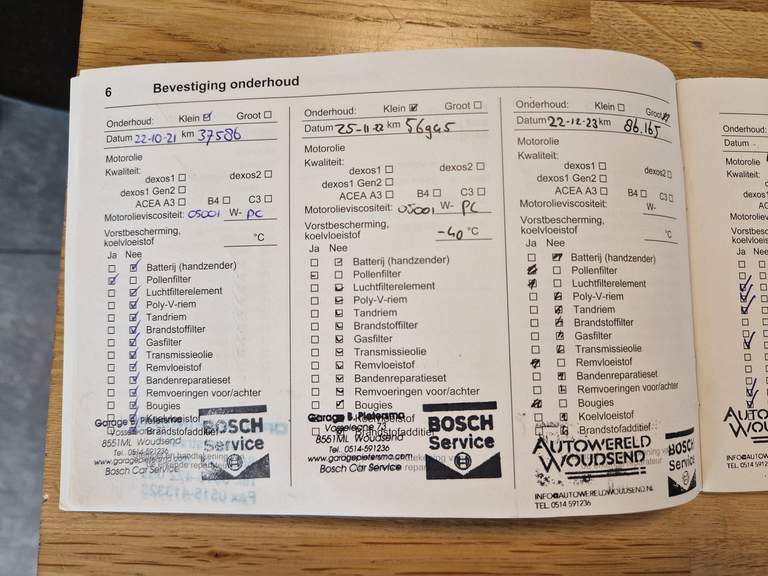 6 Bevestiging onderhoud
Onderhoud: Klein Groot
Datum 22-10-21 km 37586
Motorolie
Kwaliteit:
dexos1 dexos2
dexos1 Gen2
ACEA A3 B4 C3
Motorolieviscositeit: 05001 W- PC
Vorstbescherming,
koelvloeistof °C
Ja Nee
Batterij (handzender)
Pollenfilter
Luchtfilterelement
Poly-V-riem
Tandriem
Brandstoffilter
Gasfilter
Transmissieolie
Remvloeistof
Bandenreparatieset
Remvoeringen voor/achter
Bougies
Koelvloeistof
Brandstofadditief
Garage B. Pietersma
8551ML Woudsend
Tel. 0514-591236
www.garagepietersma.com
Bosch Car Service
BOSCH
Service
Onderhoud: Klein Groot
Datum 25-11-22 km 56945
Motorolie
Kwaliteit:
dexos1 dexos2
dexos1 Gen2
ACEA A3 B4 C3
Motorolieviscositeit: 05001 W- PC
Vorstbescherming,
koelvloeistof -40 °C
Ja Nee
Batterij (handzender)
Pollenfilter
Luchtfilterelement
Poly-V-riem
Tandriem
Brandstoffilter
Gasfilter
Transmissieolie
Remvloeistof
Bandenreparatieset
Remvoeringen voor/achter
Bougies
Koelvloeistof
Brandstofadditief
Garage B. Pietersma
8551ML Woudsend
Tel. 0514-591236
www.garagepietersma.com
Bosch Car Service
BOSCH
Service
Onderhoud: Klein Groot
Datum 22-12-23 km 86.165
Motorolie
Kwaliteit:
dexos1 dexos2
dexos1 Gen2
ACEA A3 B4 C3
Motorolieviscositeit: W-
Vorstbescherming,
koelvloeistof °C
Ja Nee
Batterij (handzender)
Pollenfilter
Luchtfilterelement
Poly-V-riem
Tandriem
Brandstoffilter
Gasfilter
Transmissieolie
Remvloeistof
Bandenreparatieset
Remvoeringen voor/achter
Bougies
Koelvloeistof
Brandstofadditief
AUTOWERELD
WOUDSEND
INFO@AUTOWERELDWOUDSEND.NL
TEL. 0514 591236
BOSCH
Service
Onderhoud:
Datum
Motorolie
Kwaliteit:
Ja Nee